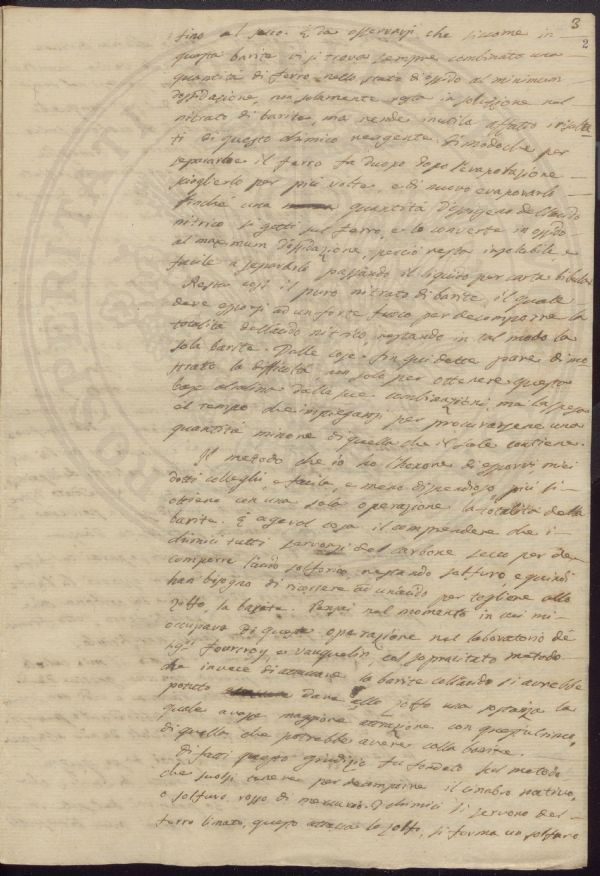 3
2
fino al secco. È da osservarsi che siccome in
questa barite vi si trova sempre combinato una
quantità di ferro nello stato di ossido al minimum
d'ossidazione, non solamente resta in soluzione nel
nitrato di barite, ma rende inutile affatto i risulta
ti di questo chimico reagente. Di modo che per
separarlo il ferro fa duopo dopo l'evaporazione
scioglierlo per più volte, e di nuovo evaporarlo
finché una quantità d'ossigeno dell'acido
nitrico si getti sul ferro, e lo converta in ossido
al maximum d'ossidazione, perciò resta insolubile, e
facile a separarlo passando il liquido per carta bibula
Resta così il puro nitrato di barite, il quale
deve esporsi ad un forte fuoco per decomporre la
totalità dell'acido nitrico, restando in tal modo la
sola barite. Dalle cose fin qui dette pare dimo
strato la difficoltà non solo per ottenere questa
base alcalina dalle sue combinazioni, ma la spesa
el tempo che impiegasi per procurarsene una
quantità minore di quella che il sale contiene.
Il metodo che io ho l'honore di esporvi miei
dotti colleghi, è facile, e meno dispendioso, più si
ottiene con una sola operazione la totalità della
barite. È agevol cosa il comprendere che i
chimici tutti servonsi del carbone secco per de
comporre l'acido solforico, restando solfuro, e quindi
han bisogno di ricorrere ad un acido per togliere allo
zolfo, la barite. Pensai nel momento in cui mi
occupavo di questa operazione nel laboratorio de
Fourcroy, e Vauquelin, col sopracitato metodo
che invece di attaccare la barite coll'acido si avrebbe
potuto dare allo zolfo una sostanza la
quale avesse maggiore attrazione con quest'ultimo,
di quello che potrebbe avere colla barite.
Difatti questo giudizio fu fondato sul metodo
che suolsi tenere per decomporre il cinabro nativo,
o solfuro rosso di mercurio. I chimici si servono del
ferro limato, questo attacca lo zolfo, si forma un solfuro